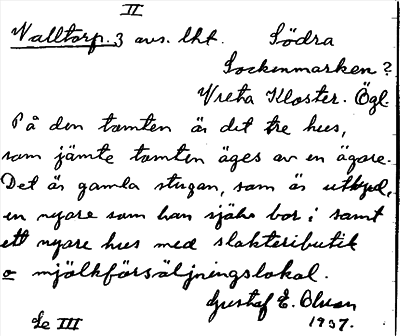 II
Valltorp. 3 avs. lht. Södra
Sockenmarken?
Vreta Kloster. Ögl.
På den tomten är det tre hus,
som jämte tomten äges av en ägare.
Det är gamla stugan, som är uthyrd,
en nyare som han själv bor i samt
ett nyare hus med slakteributik
o mjölkförsäljningslokal.
Gustaf E. Olsson
Se III 1937.